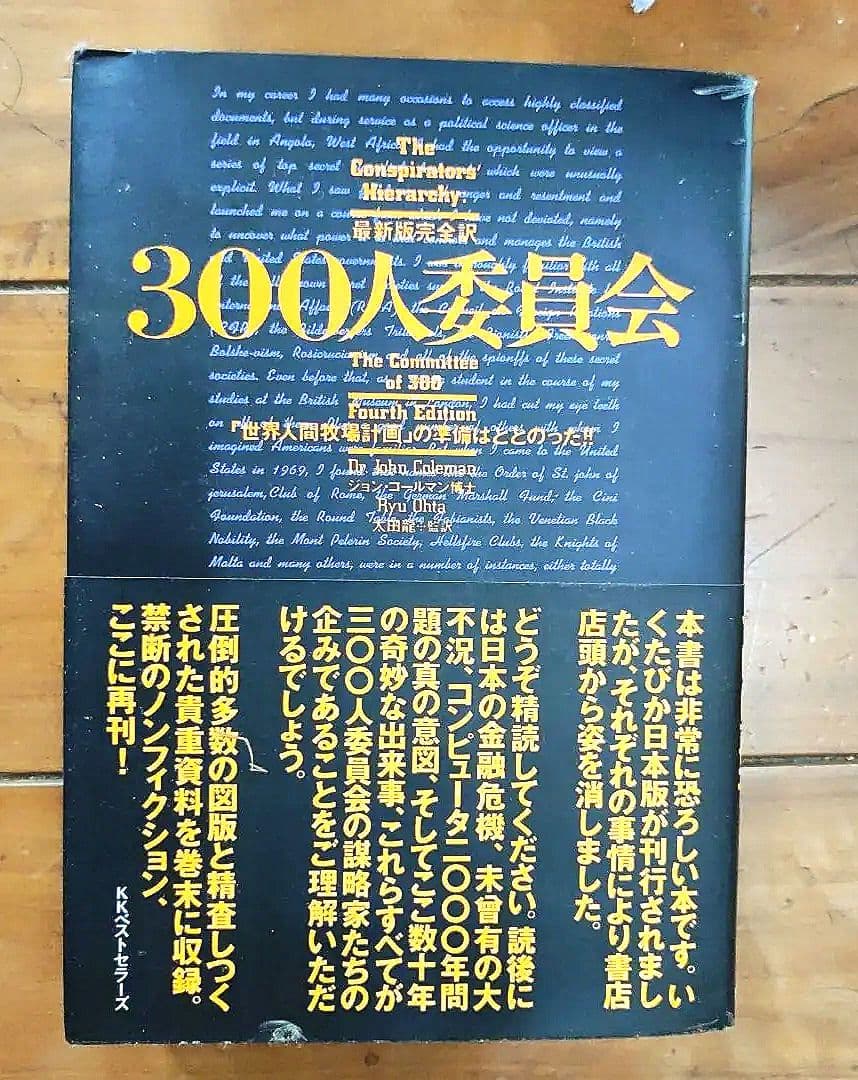 In my career I had many occasions to access highly classified
documents, but during service as a political science officer in the
field in Angola, West Africa had the opportunity to view a
series of top secret which were unusually
explicit. What I saw anger and resentment and
launched me on a have not deviated, namely
to uncover what power and manages the British
and United States governments. I was thoroughly familiar with all
societies. Even before that, as student in the course of my
studies at the British Museum in London, I had cut my eye teeth
imagined Americans I came to the United
States in 1969, I found the Order of St. john of
jerusalem, Club of Rome, the German Marshall Fund, the Cini
Foundation, the Round Table, the Fabianists, the Venetian Black
Nobility, the Mont Pelerin Society, Hellsfire Clubs, the Knights of
Malta and many others, were in a number of instances, either totally
The
Conspirators'
Hierarchy:
最新版完全訳
300人委員会
The Committee
of 300
Fourth Edition
「世界人間牧場計画」の準備はととのった!!
Dr John Coleman
ジョン・コールマン博士
Ryu Ohta
太田龍=監訳
本書は非常に恐ろしい本です。い
くたびか日本版が刊行されまし
たが、それぞれの事情により書店
店頭から姿を消しました。
どうぞ精読してください。読後に
は日本の金融危機、未曾有の大
不況、コンピュータ二〇〇〇年問
題の真の意図、そしてここ数十年
の奇妙な出来事、これらすべてが
三〇〇人委員会の謀略家たちの
企みであることをご理解いただ
けるでしょう。
圧倒的多数の図版と精査しつく
された貴重資料を巻末に収録。
禁断のノンフィクション、
ここに再刊！
KKベストセラーズ